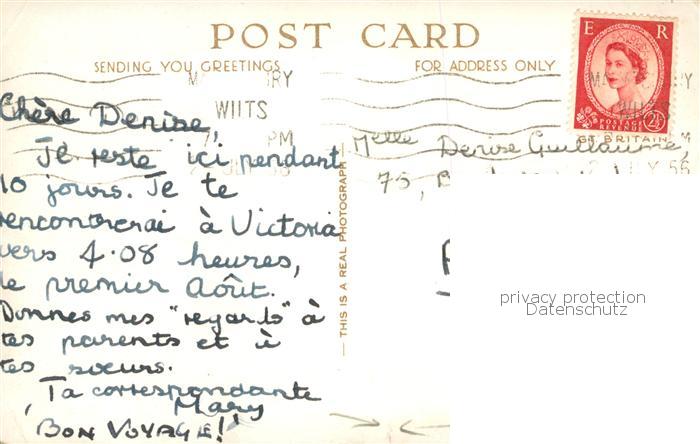 POST CARD
SENDING YOU GREETINGS
FOR ADDRESS ONLY
E R
POSTAGE
REVENUE
2½
GT. BRITAIN
WILTS
PM
Chère Denise,
Je reste ici pendant
10 jours. Je te
rencontrerai à Victoria
vers 4.08 heures,
le premier Août.
Donnes mes "regards" à
tes parents et à
tes sœurs.
Ta correspondante
Mary
BON VOYAGE!
THIS IS A REAL PHOTOGRAPH
Melle Denise Guillaume,
75, B
privacy protection
Datenschutz